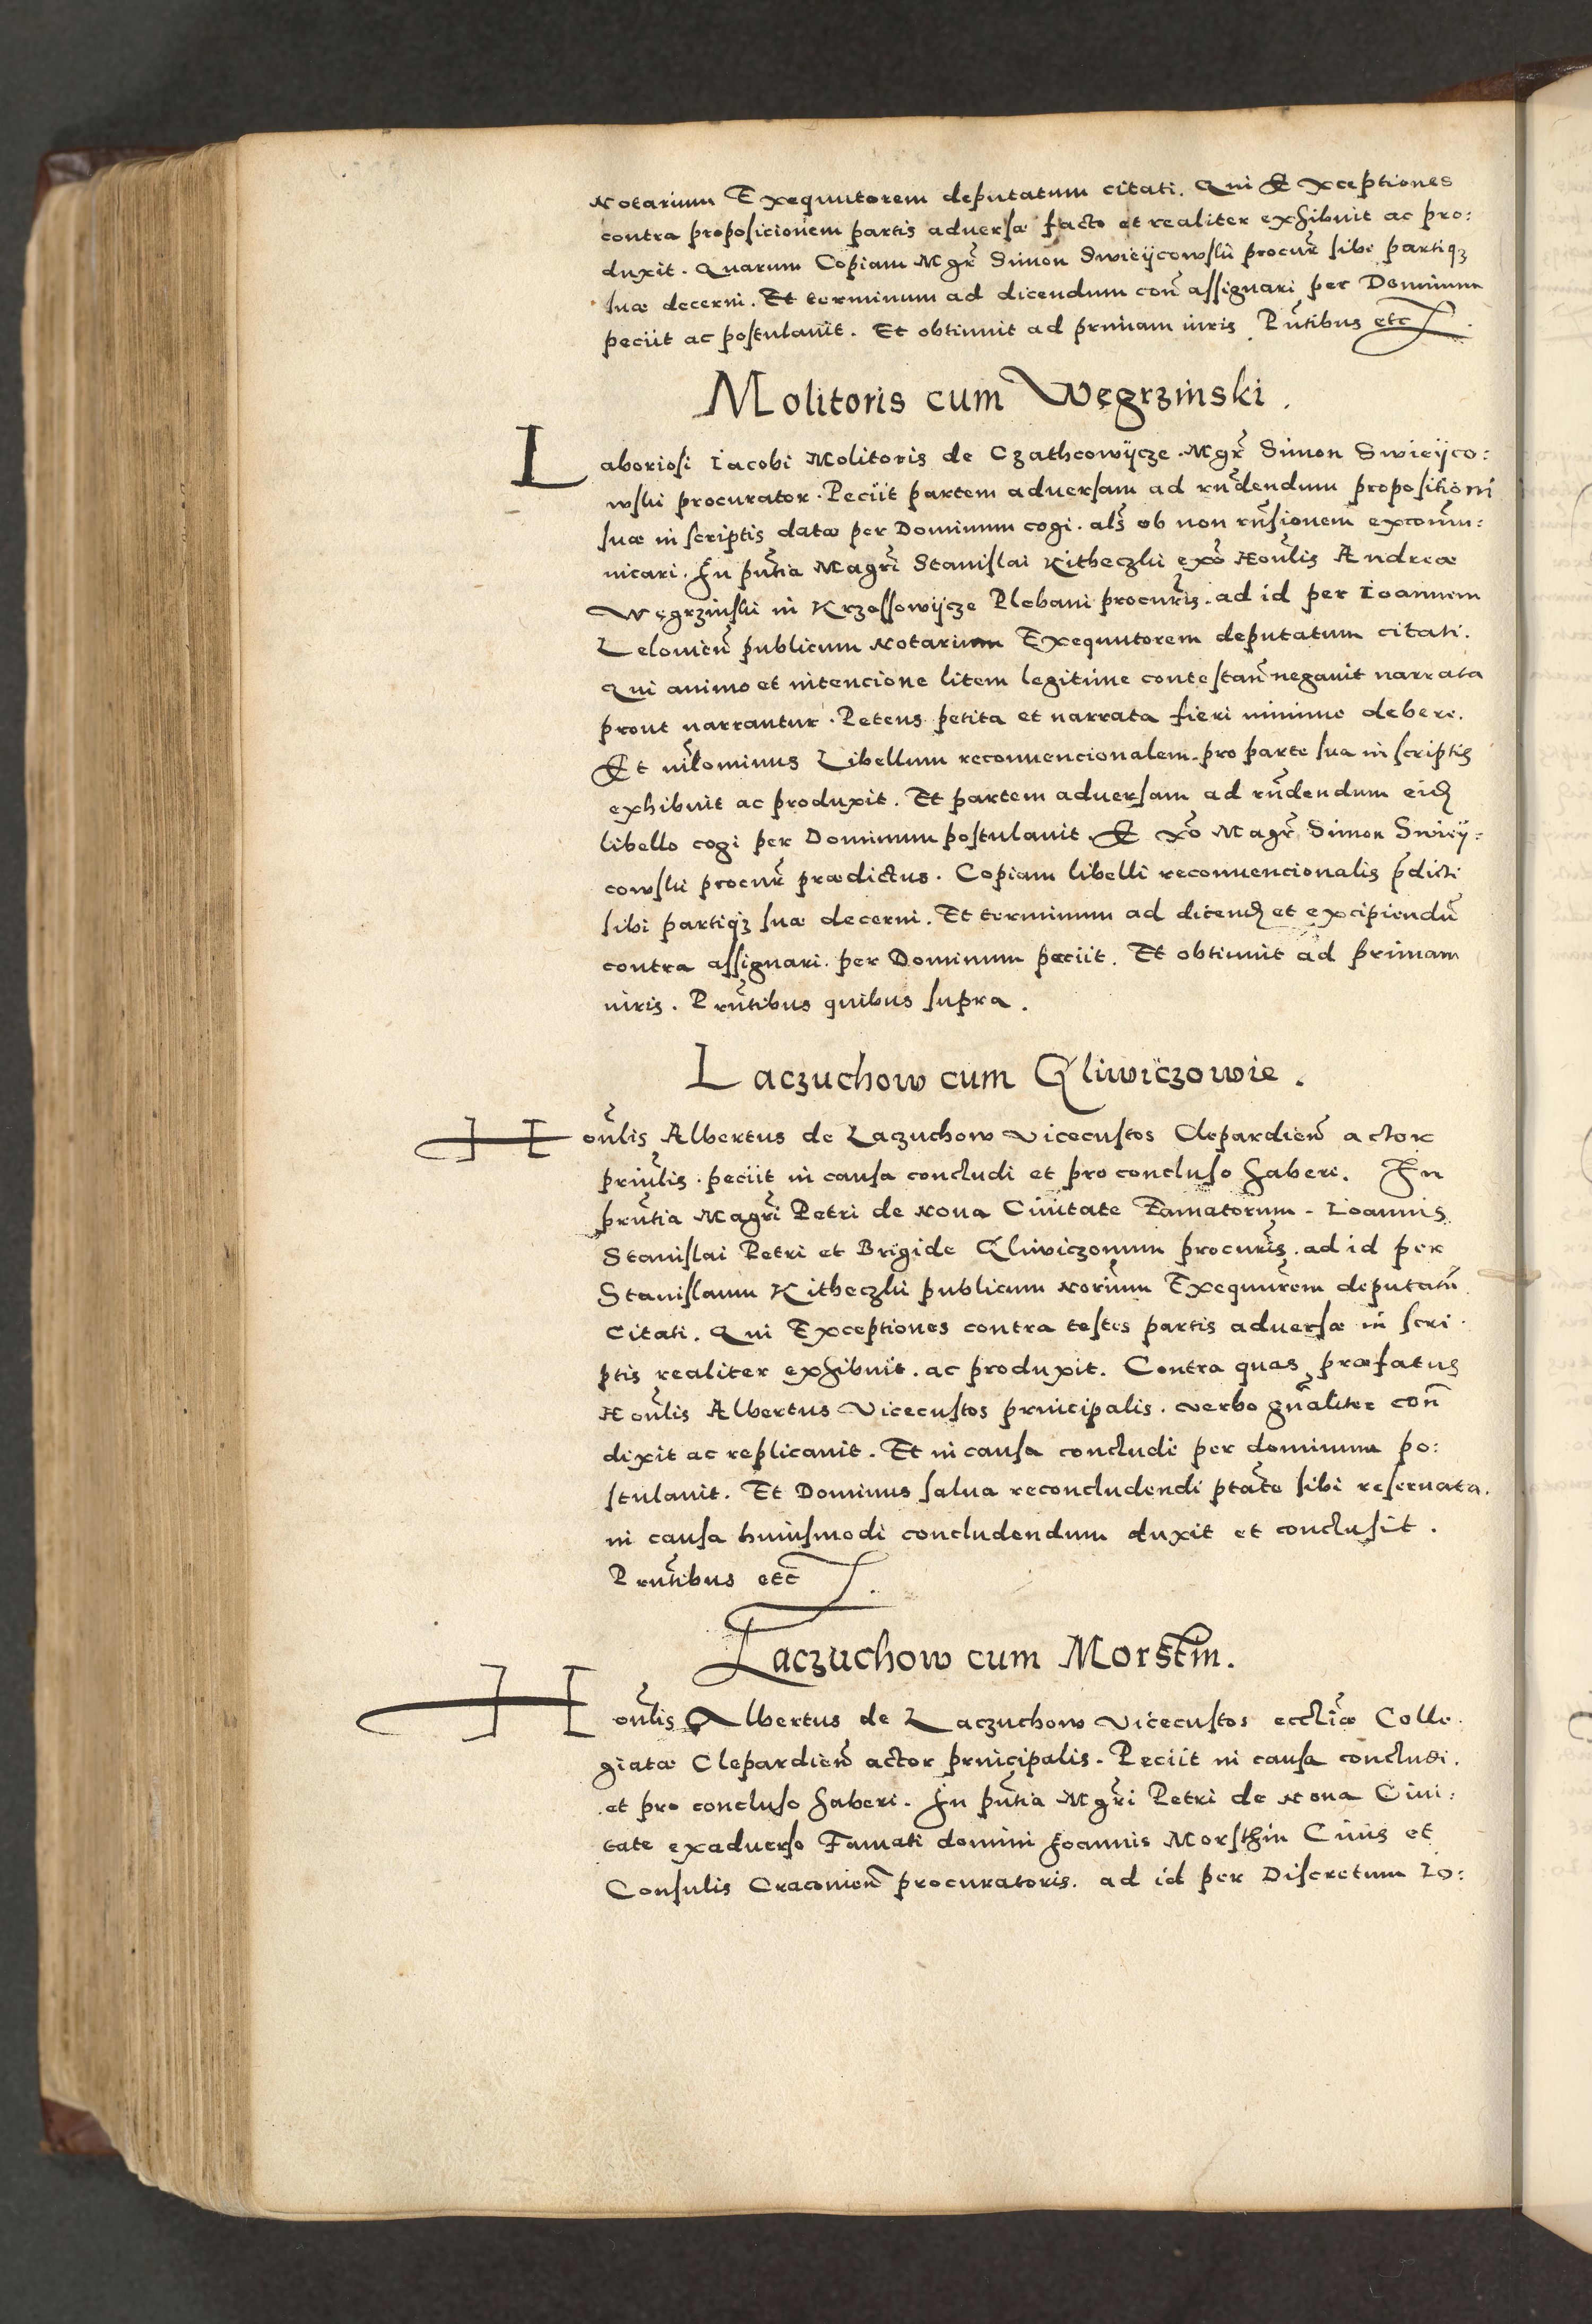 Notarium Exequutorem deputatum citati. Qui Exceptiones
contra proposicionem partis adversæ facto et realiter exhibuit ac pro:
duxit. Quarum Copiam Mgr̃ Simon Swieÿcowski procur̃ sibi partiqꝫ
suæ decerni. Et terminum ad dicendum con̄ assignari per Dominum
peciit ac postulavit. Et obtinuit ad primam iuris Pñtibus etc
Molitoris cum Węgrzinski.
Laboriosi Iacobi Molitoris de Czathcowÿcze. Mgr̃ Simon Swieÿco:
wski procurator. Peciit partem adversam ad rñdendum propositioni
suæ in scriptis datæ per Dominum cogi. als̃ ob non rñsionem excom̃u:
nicari. In pñtia Magr̃i Stanislai Kitheczki exõ Honl̃is Andreæ
Węgrzinski in Krzessowÿcze Plebani procur̃is. ad id per Ioannem
Leloviẽn publicum Notarium Exequutorem deputatum citati.
Qui animo et intencione litem legitime contestan̄ negavit narrata
prout narrantur. Petens petita et narrata fieri minime debere.
Et nil̃ominus Libellum reconvencionalem pro parte sua in scriptis
exhibuit ac produxit. Et partem adversam ad rñdendum eid̃
libello cogi per Dominum postulavit. Exõ Magr̃ Simon Swieÿ:
cowski procur̃ prædictus. Copiam libelli reconvencionalis p̃dicti
sibi partiqꝫ suæ decerni. Et terminum ad dicend̃ et excipiendũ
contra assignari. per Dominum peciit. Et obtinuit ad primam
iuris. Prñtibus quibus supra.
Laczuchow cum Gliwiczowie.
Honl̃is Albertus de Laczuchow Vicecustos Clepardieñ actor
prinl̃is. peciit in causa concludi et pro concluso haberi. In
prñtia Magr̃i Petri de Nova Civitate Famatorum. Ioannis
Stanislai Petri et Brigide Gliwiczonum procur̃is. ad id per
Stanislaum Kitheczki publicum Nori̴um Exequur̃em deputatũ
Citati. Qui Exceptiones contra testes partis adversæ in scri
ptis realiter exhibuit. ac produxit. Contra quas præfatus
Honl̃is Albertus Vicecustos principalis. verbo gñaliter con̄
dixit ac replicavit. Et in causa concludi per dominum po:
stulavit. Et Dominus salva reconcludendi ptãte sibi reservata.
in causa huiusmodi concludendum duxit et conclusit.
Prñtibus etc̄
Laczuchow cum Morstin.
Honl̃is Albertus de Laczuchow Vicecustos eccl̃iæ Colle
giatæ Clepardieñ actor principalis. Peciit in causa concludi.
et pro concluso haberi. In pñtia Mgr̃i Petri de Nova Civi:
tate exadverso Famati domini Ioannis Morsthin Civis et
Consulis Cracovieñ procuratoris. ad id per Discretum Io: